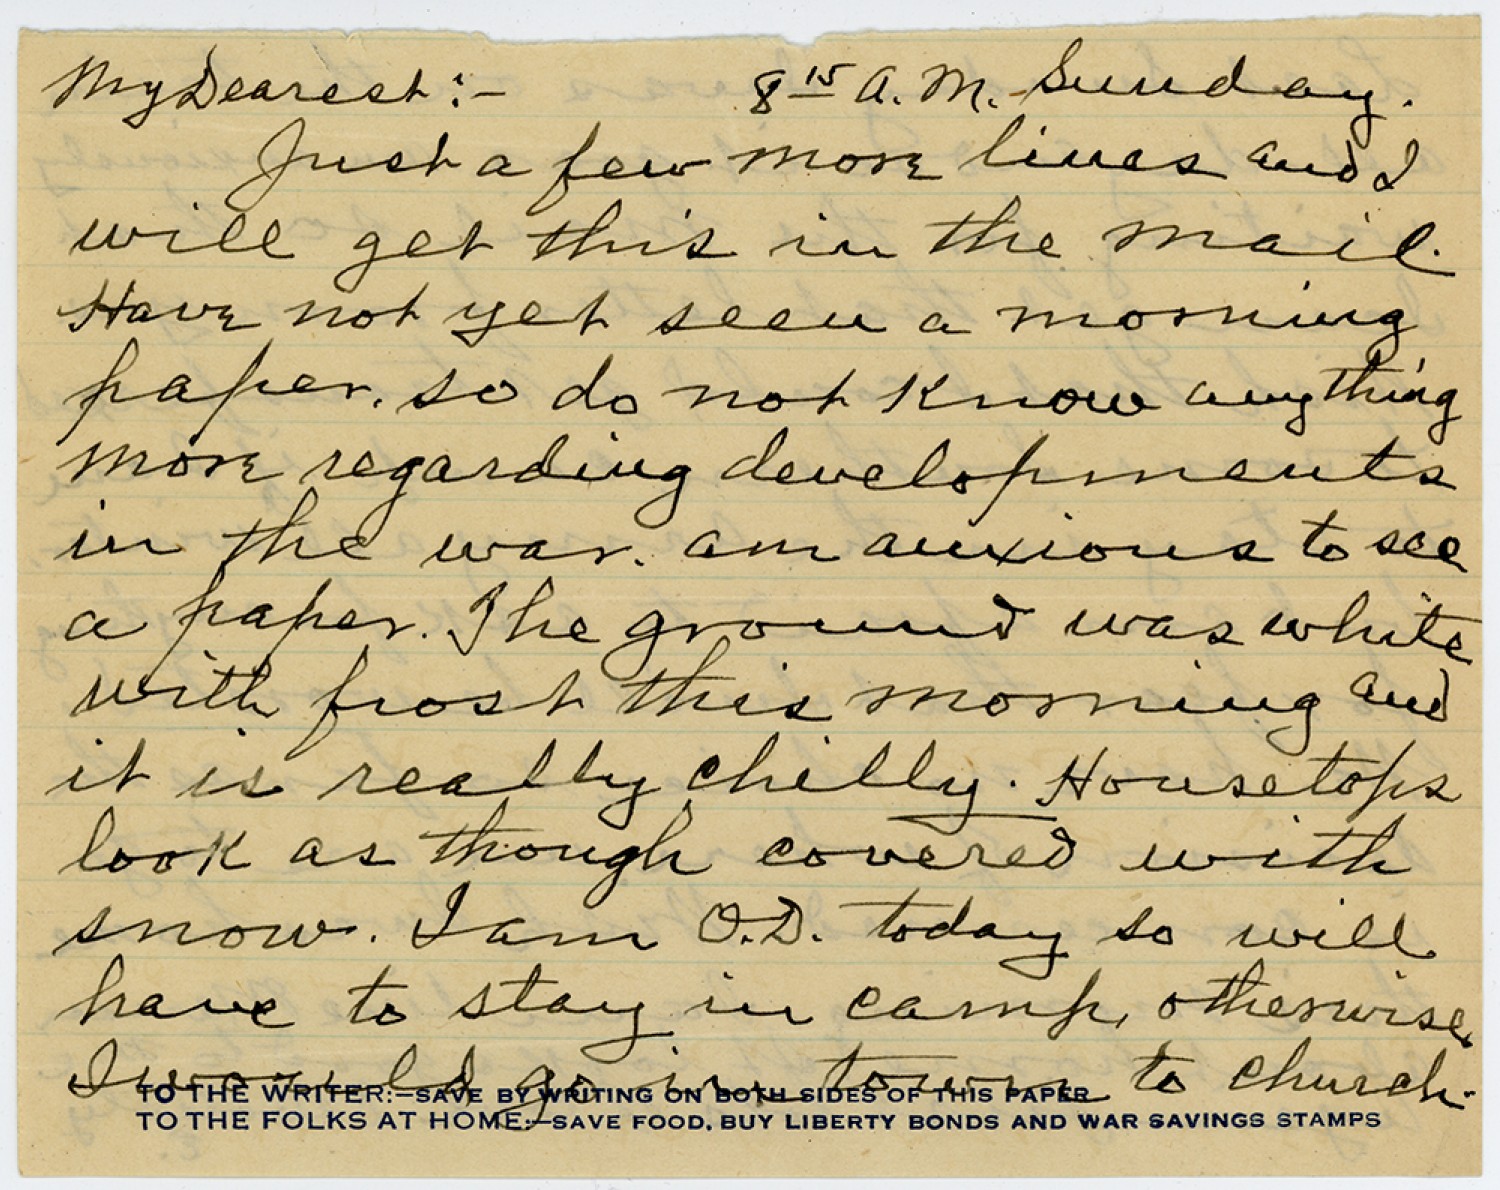 My Dearest:- 8 15 A.M. Sunday.
Just a few more lines and I
will get this in the mail.
Have not yet seen a morning
paper, so do not know anything
more regarding developments
in the war. am anxious to see
a paper. The ground was white
with frost this morning and
it is really chilly. Housetops
look as though covered with
snow. I am O.D. today so will
have to stay in camp, otherwise
I would go in town to church.
TO THE WRITER:—SAVE BY WRITING ON BOTH SIDES OF THIS PAPER
TO THE FOLKS AT HOME:—SAVE FOOD, BUY LIBERTY BONDS AND WAR SAVINGS STAMPS